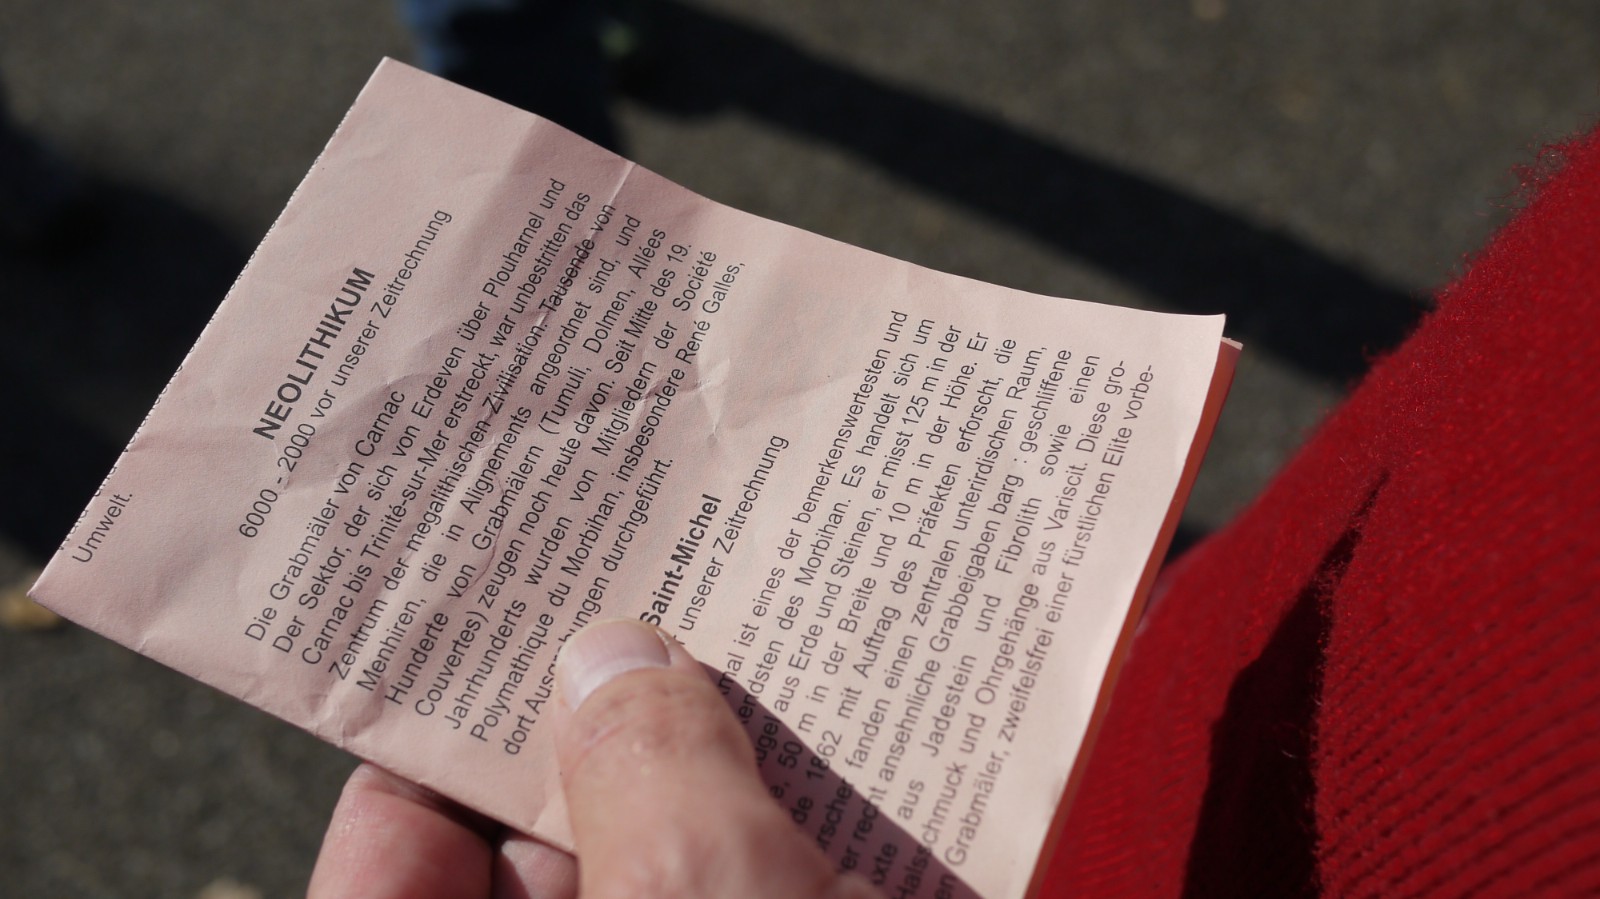 Umwelt.
NEOLITHIKUM
6000 - 2000 vor unserer Zeitrechnung
Die Grabmäler von Carnac
Der Sektor, der sich von Erdeven über Plouharnel und
Carnac bis Trinité-sur-Mer erstreckt, war unbestritten das
Zentrum der megalithischen Zivilisation. Tausende von
Menhiren, die in Alignements angeordnet sind, und
Hunderte von Grabmälern (Tumuli, Dolmen, Allées
Couvertes) zeugen noch heute davon. Seit Mitte des 19.
Jahrhunderts wurden von Mitgliedern der Société
Polymathique du Morbihan, insbesondere René Galles,
dort durchgeführt.
Saint-Michel
unserer Zeitrechnung
ist eines der bemerkenswertesten und
des Morbihan. Es handelt sich um
aus Erde und Steinen, er misst 125 m in der
50 m in der Breite und 10 m in der Höhe. Er
de 1862 mit Auftrag des Präfekten erforscht, die
fanden einen zentralen unterirdischen Raum,
er recht ansehnliche Grabbeigaben barg : geschliffene
aus Jadestein und Fibrolith sowie einen
Halsschmuck und Ohrgehänge aus Variscit. Diese gro-
en Grabmäler, zweifelsfrei einer fürstlichen Elite vorbe-